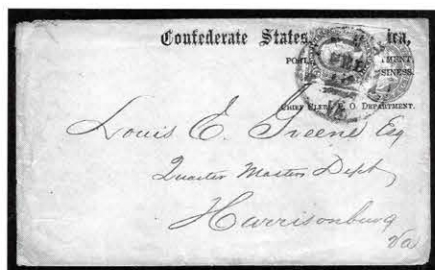 Confederate States ica,
POS MENT
SINESS.
CHIEF CLERK P. O. DEPARTMENT.
Louis E. Greene Esq
Quarter Masters Dept
Harrisonburg
Va